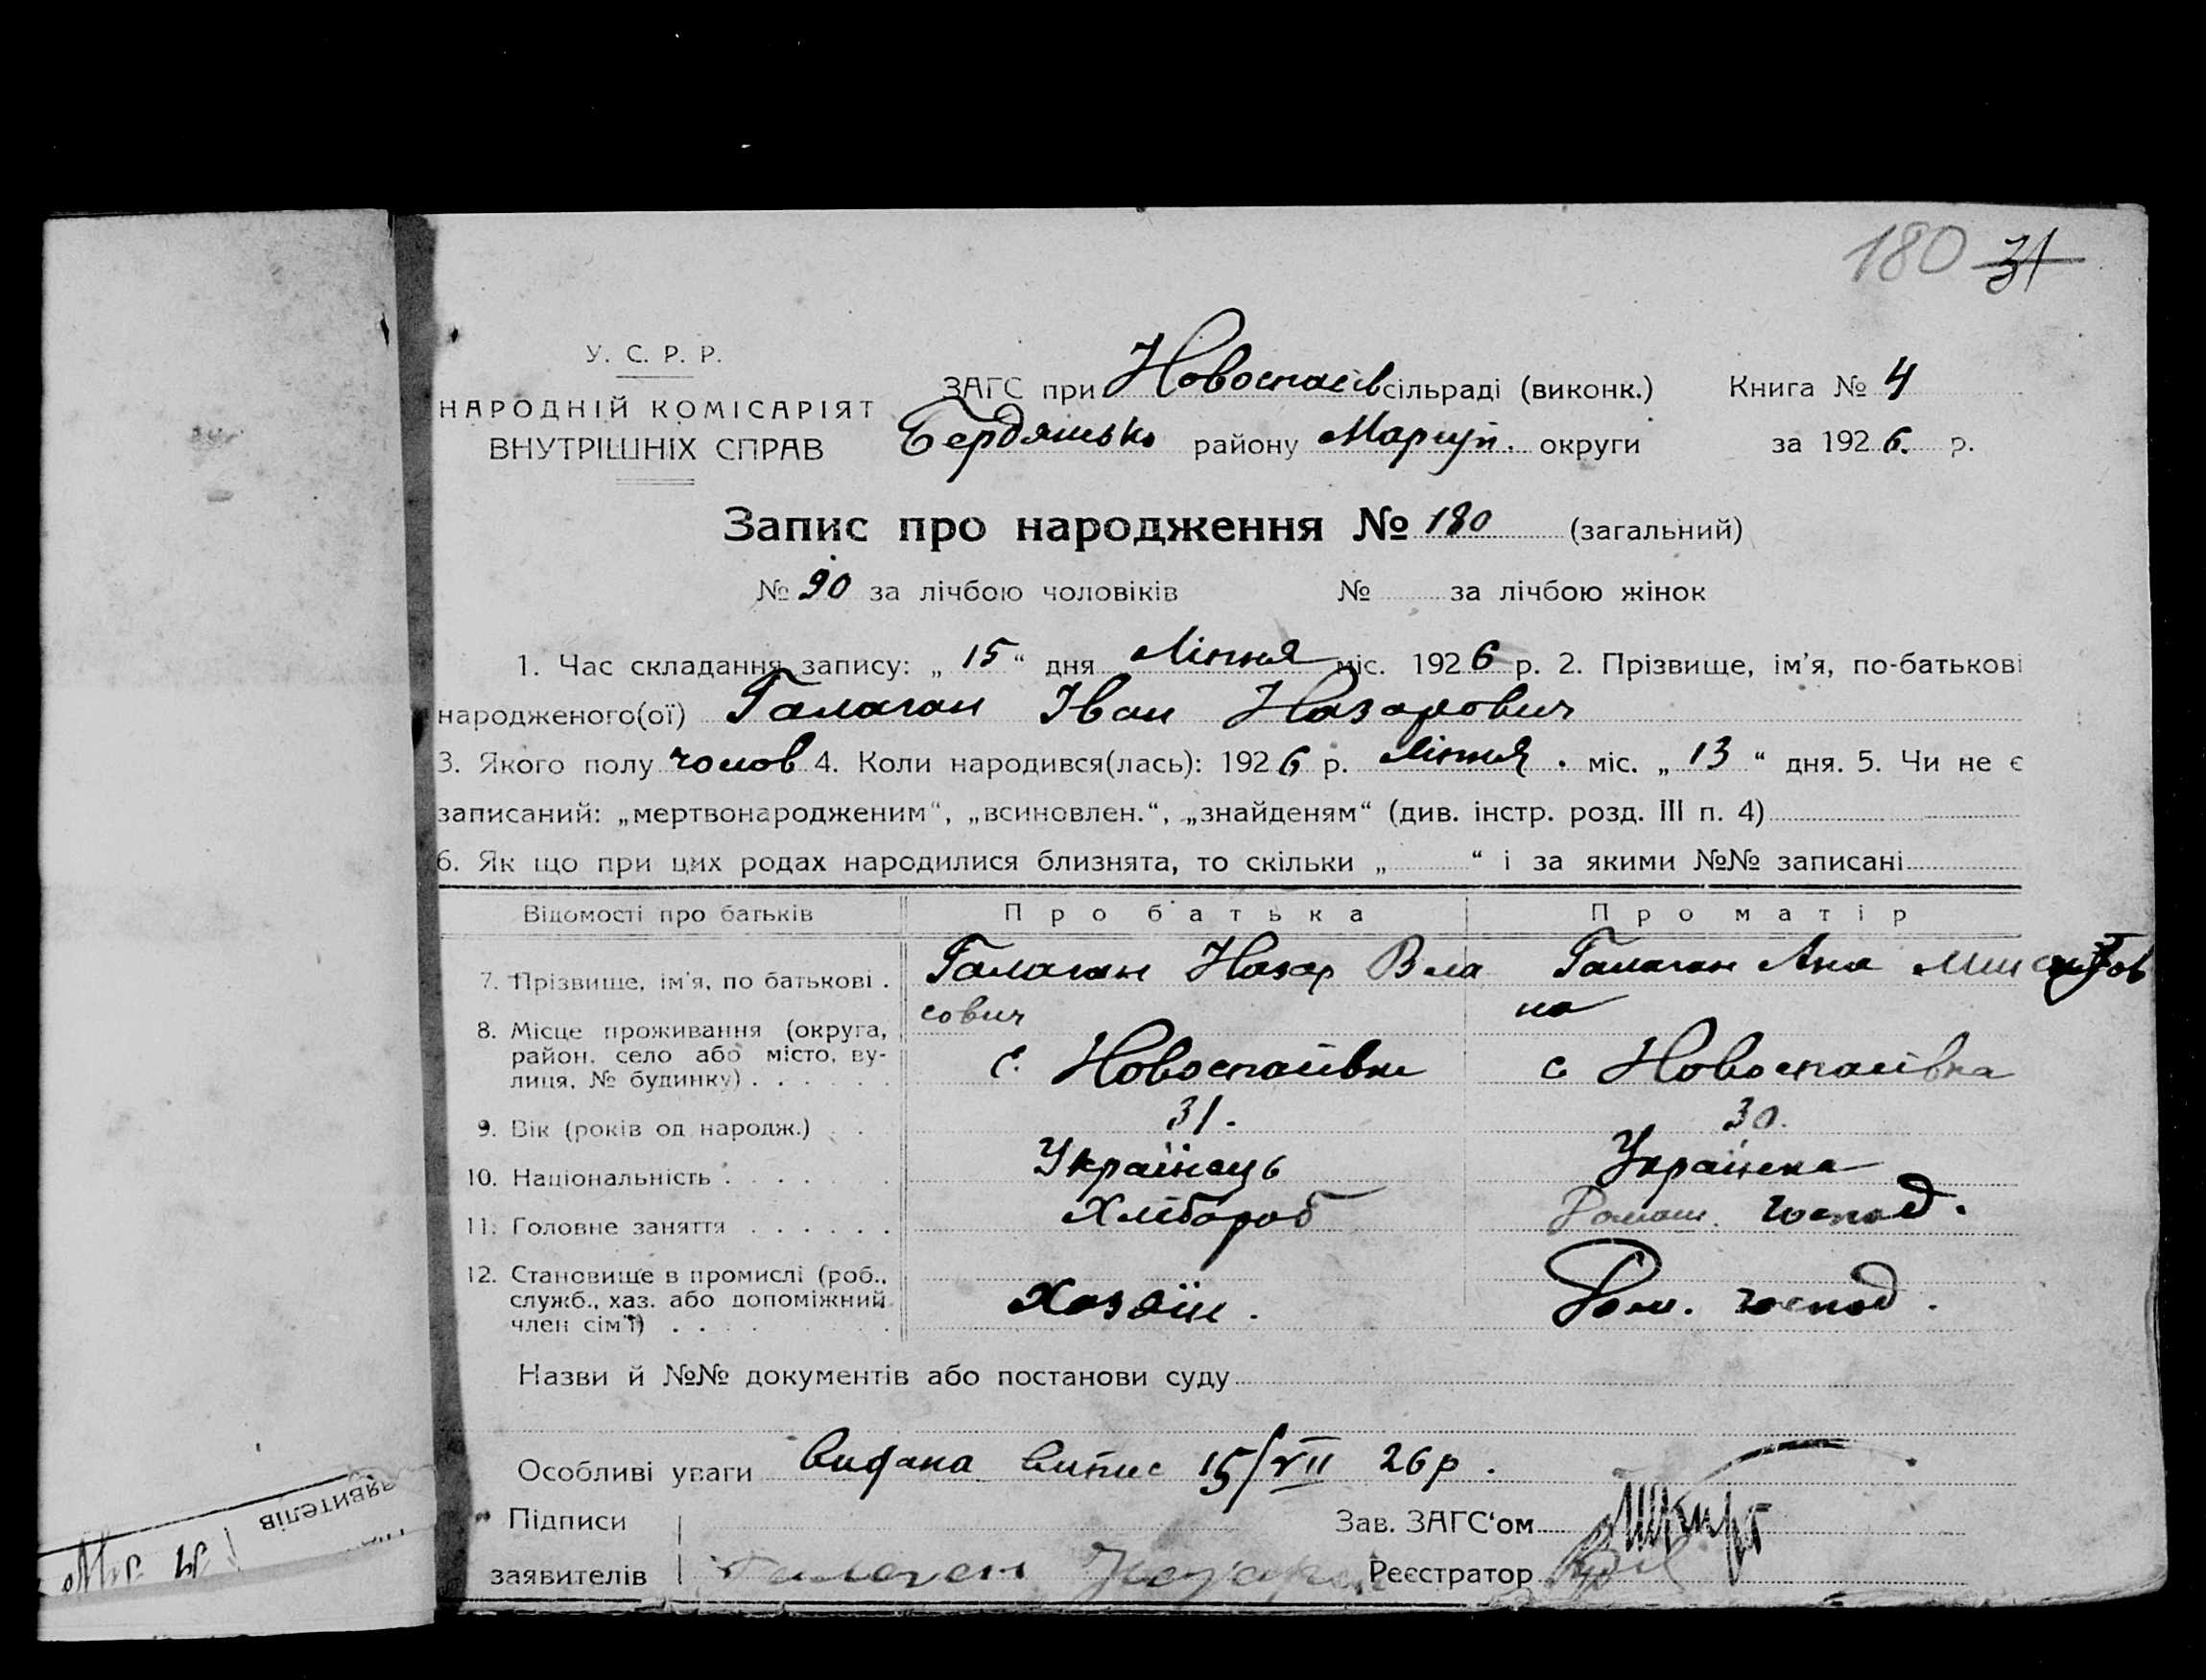 180 31
У. С. Р. Р.
НАРОДНІЙ КОМІСАРІЯТ
ВНУТРІШНІХ СПРАВ
ЗАГС при Новоспасів сільраді (виконк.) Книга № 4
Бердянсько району Маріуп. округи за 1926. р.
Запис про народження № 180 (загальний)
№ 90 за лічбою чоловіків № за лічбою жінок
1. Час складання запису: „15“ дня Липня міс. 1926 р. 2. Прізвище, ім’я, по-батькові
народженого(ої) Галаган Іван Назарович
3. Якого полу чолов 4. Коли народився(лась): 1926 р. Липня. міс. „13“ дня. 5. Чи не є
записаний: „мертвонародженим“, „всиновлен.“, „знайденям“ (див. інстр. розд. III п. 4)
6. Як що при цих родах народилися близнята, то скільки „ “ і за якими №№ записані
Відомості про батьків Про батька Про матір
7. Прізвище, ім’я, по батькові . Галаган Назар Вла Галаган Ана
сович на
8. Місце проживання (округа,
район, село або місто, ву-
лиця, № будинку) . . . . . . с. Новоспаівка с Новоспаівка
9. Вік (років од народж.) . . 31. 30.
10. Національність . . . . . . . Українець Українка
11. Головне заняття . . . . . . Хлібороб Домаш. господ.
12. Становище в промислі (роб.,
служб., хаз. або допоміжний
член сім’ї) . . . . . . Хазяїн. Дом. господ.
Назви й №№ документів або постанови суду
Особливі уваги видана випис 15/VII 26 р.
Підписи Зав. ЗАГС‘ом
заявителів Галаган Назар Реєстратор
заявителів